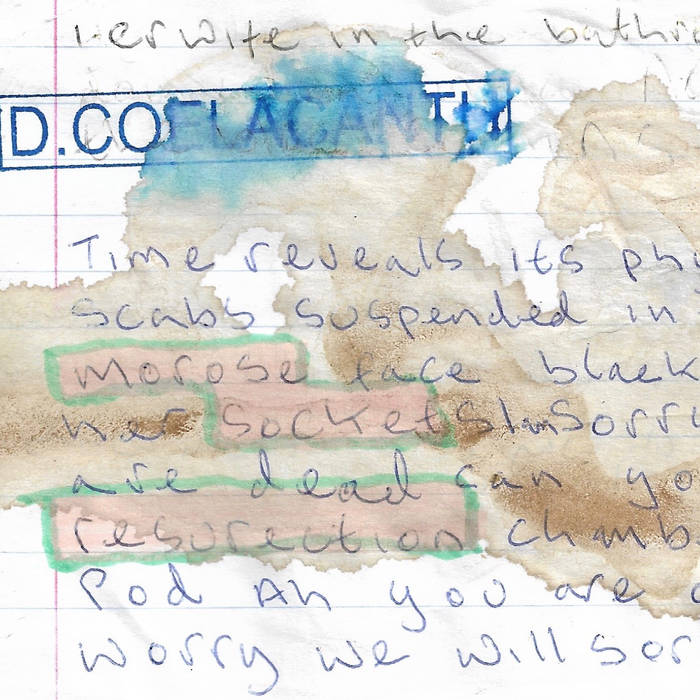 wife in the
D.COELACANTH
Time reveals its
scabs suspended in
morose face black
her sockets Im Sorry
are dead can
resurection
Pod Ah you are
worry we will